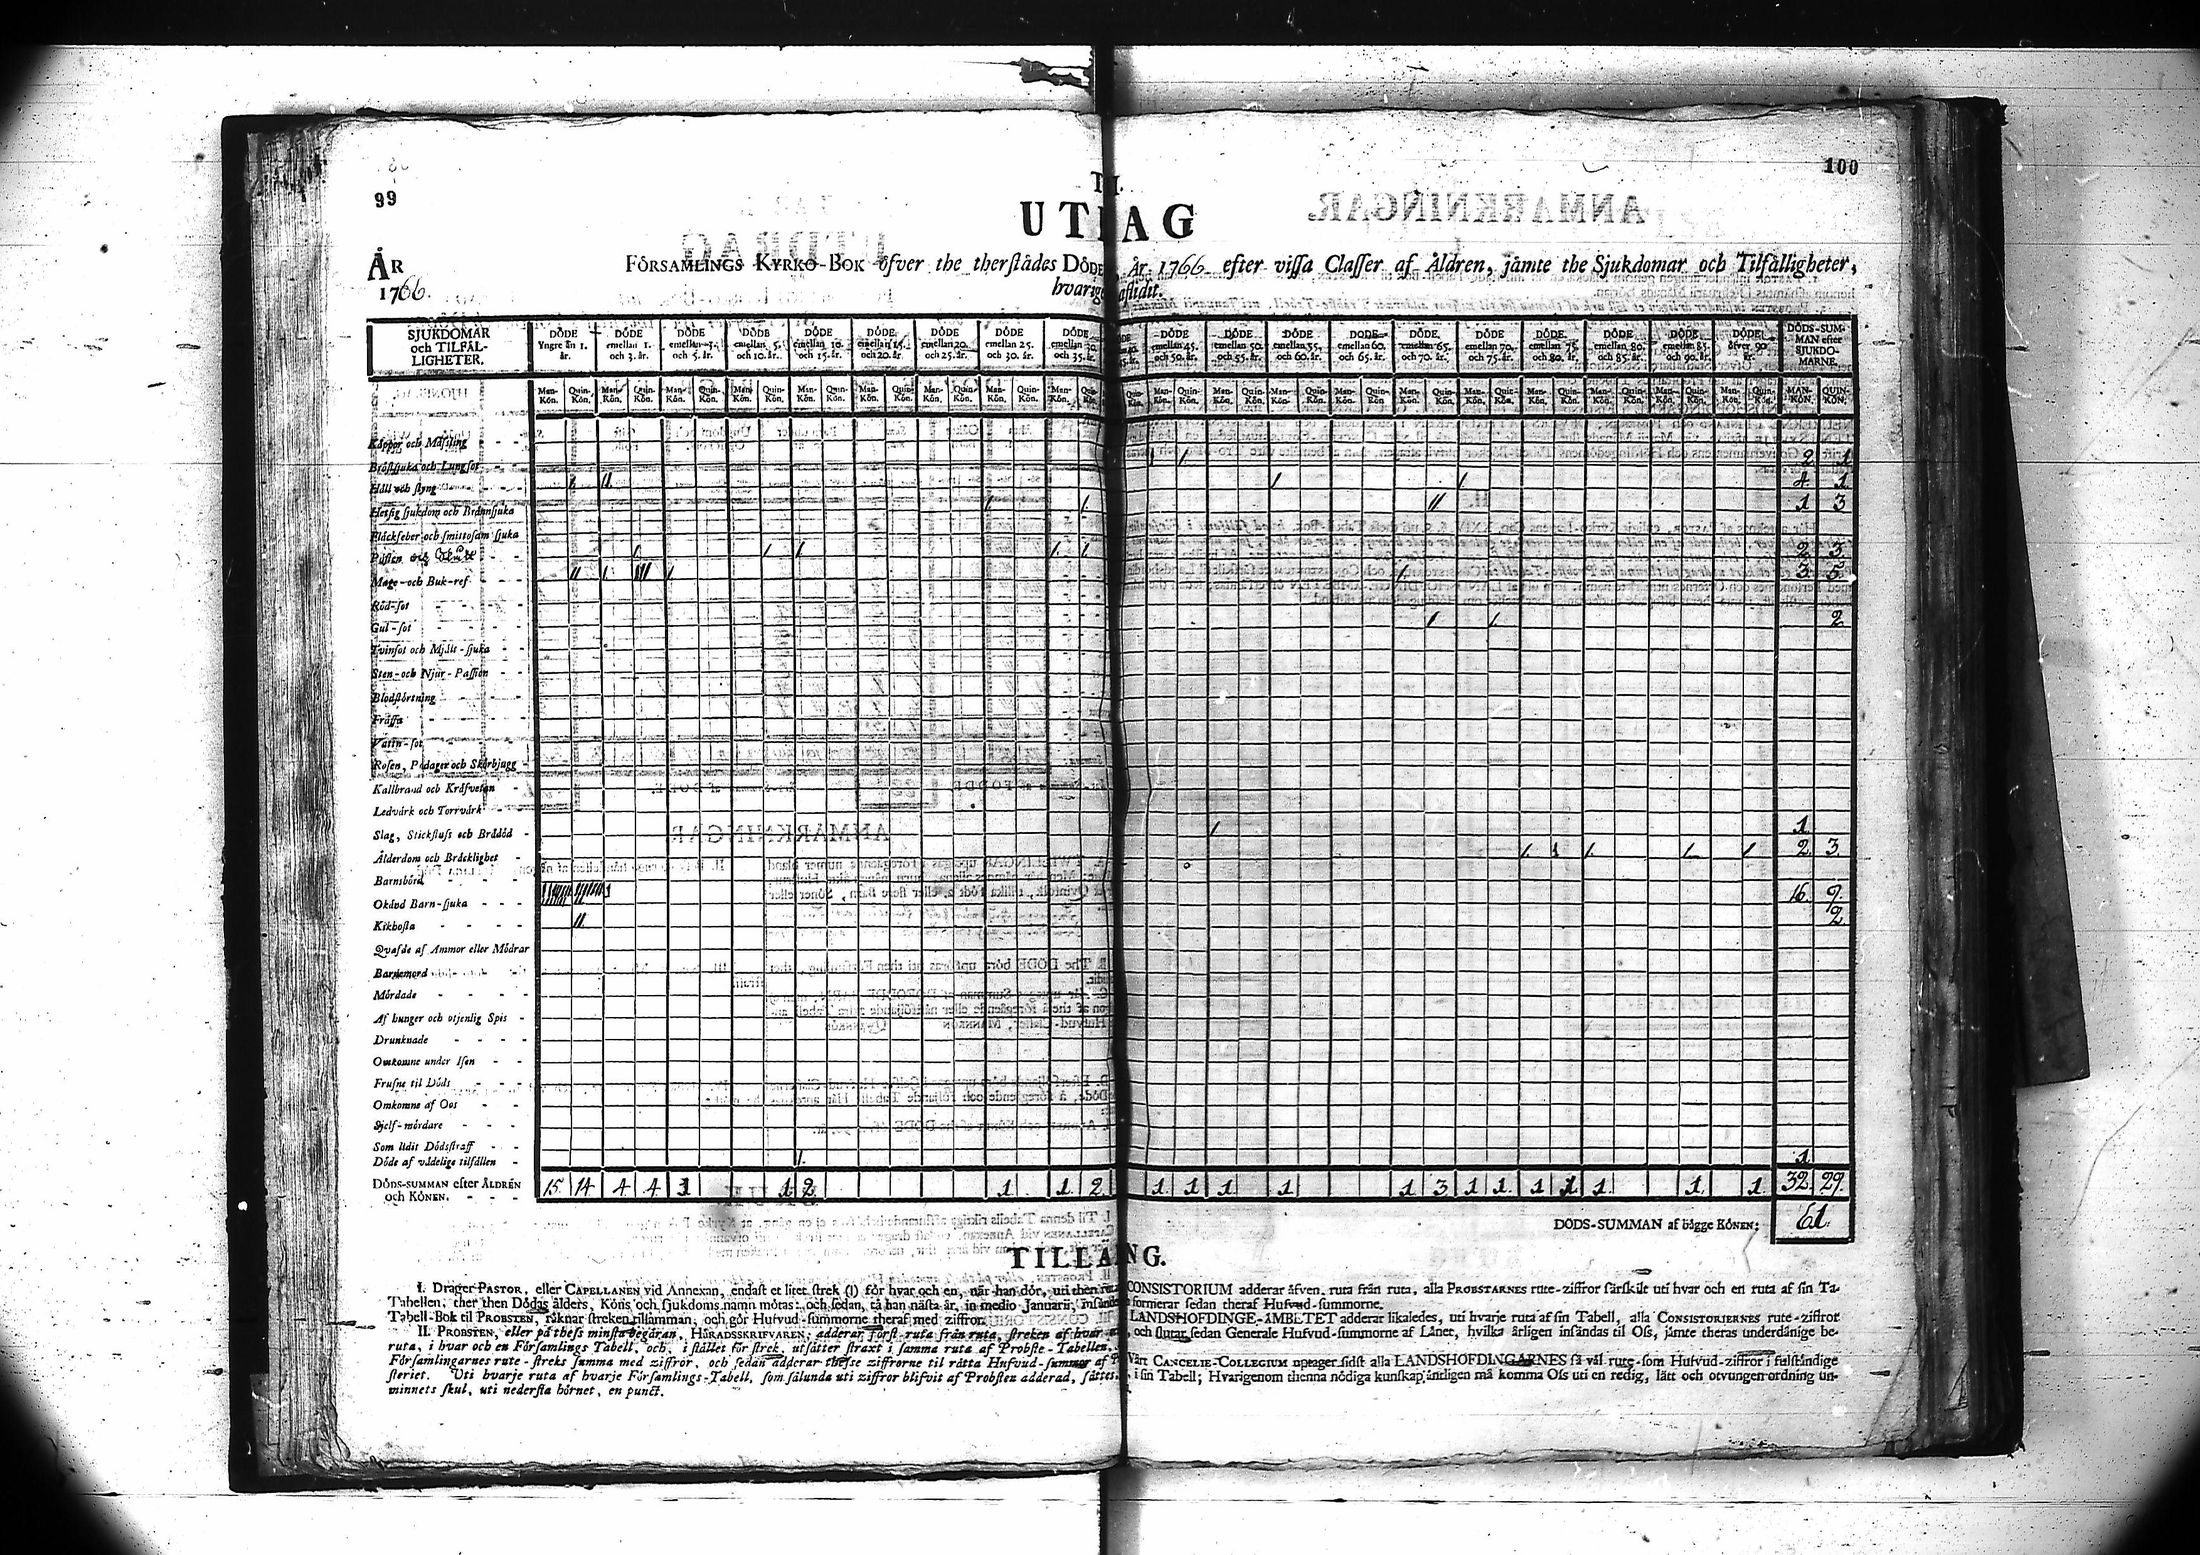 99
100
UT AG
ÅR
1766.
FÖRSAMLINGS KYRKO-BOK öfver the therstädes DÖDE, År 1766 efter vissa Classer af Åldren, jämte the Sjukdomar och Tilfälligheter,
SJUKDOMAR och TILFÄL-LIGHETER.
DÖDE Yngre än 1. år.
DÖDE emellan 1. och 3. år.
DÖDE emellan 3. och 5. år.
DÖDE emellan 5. och 10. år.
DÖDE emellan 10. och 15. år.
DÖDE emellan 15. och 20. år.
DÖDE emellan 20. och 25. år.
DÖDE emellan 25. och 30. år.
DÖDE och 35. år.
DÖDE emellan 45. och 50. år.
DÖDE emellan 50. och 55. år.
DÖDE emellan 55. och 60. år.
DÖDE emellan 60. och 65. år.
DÖDE emellan 65. och 70. år.
DÖDE emellan 70. och 75. år.
DÖDE emellan 75. och 80. år.
DÖDE emellan 80. och 85. år.
DÖDE emellan 85. och 90. år.
DÖDE öfver 90. år.
DÖDS-SUM-MAN efter SJUKDO-MARNE.
Man-Kön. Quin-Kön. Man-Kön. Quin-Kön. Man-Kön. Quin-Kön. Man-Kön. Quin-Kön. Man-Kön. Quin-Kön. Man-Kön. Quin-Kön. Man-Kön. Quin-Kön. Man-Kön. Quin-Kön. Man-Kön. Quin-Kön. Man-Kön. Quin-Kön. Man-Kön. Quin-Kön. Man-Kön. Quin-Kön. Man-Kön. Quin-Kön. Man-Kön. Quin-Kön. Man-Kön. Quin-Kön. Man-Kön. Quin-Kön. Man-Kön. Quin-Kön. Man-Kön. Quin-Kön. MAN-KÖN. QUIN-KÖN.
Koppor och Mässling
Bröstsjuka och Lungsot 2. 1.
Håll och styng 4. 1.
Hetsig sjukdom och Brännsjuka 1 3
Fläckfeber och smittosam sjuka
Pusten 2. 3.
Mage- och Buk-ref 3. 5.
Röd-sot
Gul-sot 2
Tvinsot och Mjält-sjuka
Sten- och Njur-Passion
Blodstörtning
Frässa
Vattu-sot
Rosen, Podager och Skörbjugg
Kallbrand och Kräfvetan
Ledvärk och Torrvärk
Slag, Stickfluss och Brådöd 1.
Ålderdom och Bräcklighet 2. 3.
Barnsbörd
Okänd Barn-sjuka 16. 9.
Kikhosta 2
Qvafde af Ammor eller Mödrar
Barnemord
Mördade
Af hunger och otjenlig Spis
Drunknade
Omkomne under Isen
Frusne til Döds
Omkomne af Oos
Sjelf-mördare
Som lidit Dödsstraff
Döde af vådelige tilfällen 1.
DÖDS-SUMMAN efter ÅLDREN och KÖNEN. 15. 14. 4. 4. 1 1 2. 1 1. 2. 1 1 1 1 1 3 1 1. 1 1. 1. 1. 1. 32. 29.
DÖDS-SUMMAN af bägge KÖNEN: 61.
TILLÄ NG.
I. Drager PASTOR, eller CAPELLANEN vid Annexan, endast et litet strek (I) för hvar och en, när han dör, uti then
Tabellen, ther then Dödas ålders, Köns och sjukdoms namn mötas: och sedan, tå han nästa år, in medio Januarii,
Tabell-Bok til PROBSTEN, räknar streken tillsamman, och gör Hufvud-summorne theraf med ziffror.
II. PROBSTEN, eller på thess minsta begäran, HÄRADSSKRIFVAREN, adderar först ruta från ruta, streken af hvar
ruta, i hvar och en Församlings Tabell, och, i stället för strek, utsätter straxt i samma ruta af Probste-Tabellen,
Församlingarnes rute-streks summa med ziffror, och sedan adderar thesse ziffrorne til rätta Hufvud-summor af
steriet. Uti hvarje ruta af hvarje Församlings-Tabell, som sålunda uti ziffror blifvit af Probsten adderad, sättes,
minnets skul, uti nedersta hörnet, en punct.
CONSISTORIUM adderar äfven, ruta från ruta, alla PROBSTARNES rute-ziffror särskilt uti hvar och en ruta af sin Ta-
formerar sedan theraf Hufvud-summorne.
LANDSHÖFDINGE-ÄMBETET adderar likaledes, uti hvarje ruta af sin Tabell, alla CONSISTORIERNES rute-ziffror
och slutar sedan Generale Hufvud-summorne af Länet, hvilka årligen insändas til Oss, jämte theras underdånige be-
Vårt CANCELIE-COLLEGIUM uptager sidst alla LANDSHÖFDINGARNES så väl rute-som Hufvud-ziffror i fulständige
i sin Tabell; Hvarigenom thenna nödiga kunskap äntligen må komma Oss uti en redig, lätt och otvungen ordning un-